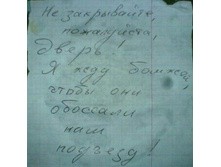 Не закрывайте,
пожалуйста,
дверь!
Я жду бомжей,
чтобы они
обоссали
наш
подъезд!